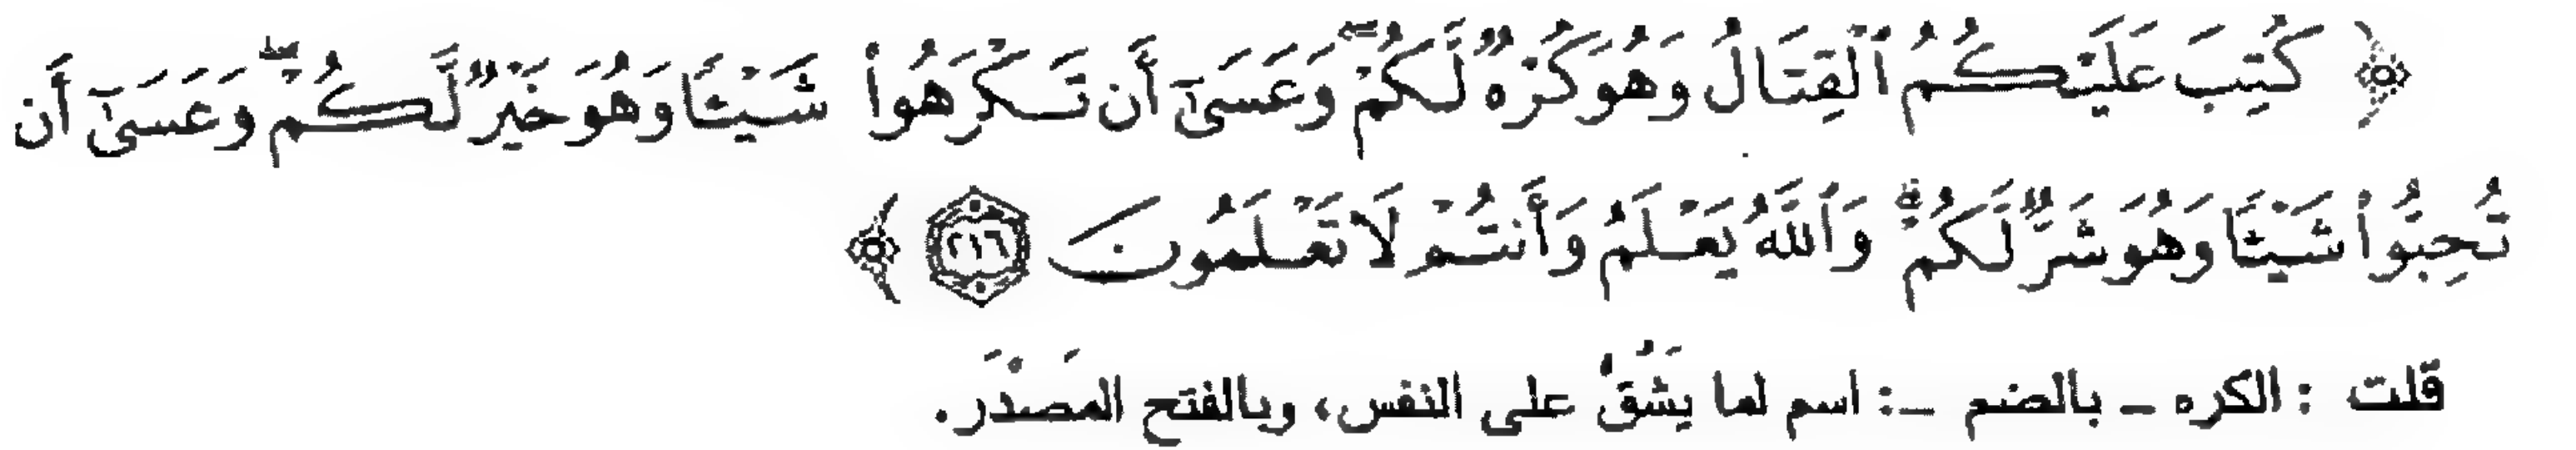 ﴿ كُتِبَ عَلَيْكُمُ ٱلْقِتَالُ وَهُوَ كُرْهٌ لَّكُمْ ۖ وَعَسَىٰٓ أَن تَكْرَهُوا۟ شَيْـًٔا وَهُوَ خَيْرٌ لَّكُمْ ۖ وَعَسَىٰٓ أَن
تُحِبُّوا۟ شَيْـًٔا وَهُوَ شَرٌّ لَّكُمْ ۗ وَٱللَّهُ يَعْلَمُ وَأَنتُمْ لَا تَعْلَمُونَ ٢١٦ ﴾
قلت : الكره ـ بالضم ـ: اسم لما يَشُقُّ على النفس، وبالفتح المَصْدَر.